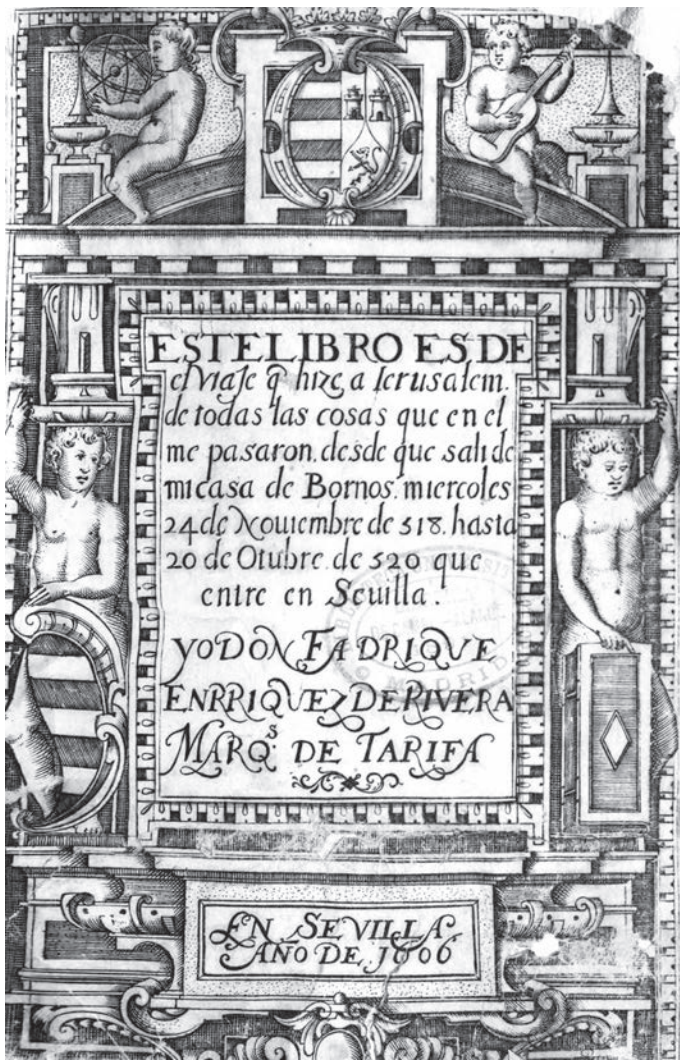 ESTE LIBRO ES DE
el Viaje q̃ hize a Ierusalem.
de todas las cosas que en el
me pasaron. desde que sali de
mi casa de Bornos. miercoles
24 de Nouiembre de 518. hasta
20 de Otubre. de 520 que
entre en Seuilla.
YO DON FADRIQVE
ENRRIQVEZ DE RIVERA
MARQ.S DE TARIFA
MADRID
EN SEVILLA.
AÑO DE, 1606